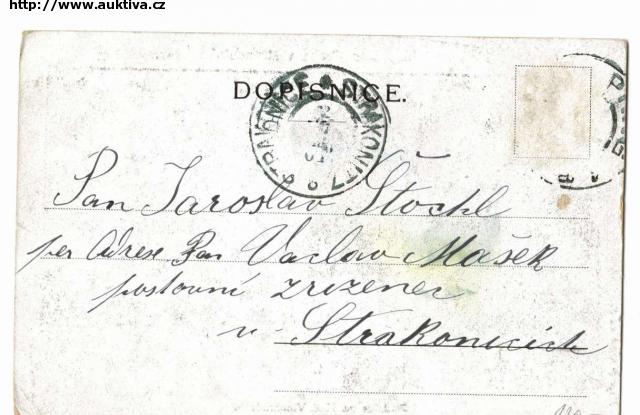 http://www.auktiva.cz
DOPISNICE.
STRAKONICE STRAKONITZ
Pan Jaroslav Štochl
per Adrese Pan Vaclav Mašek
postovní zrizenec
v Strakonicich